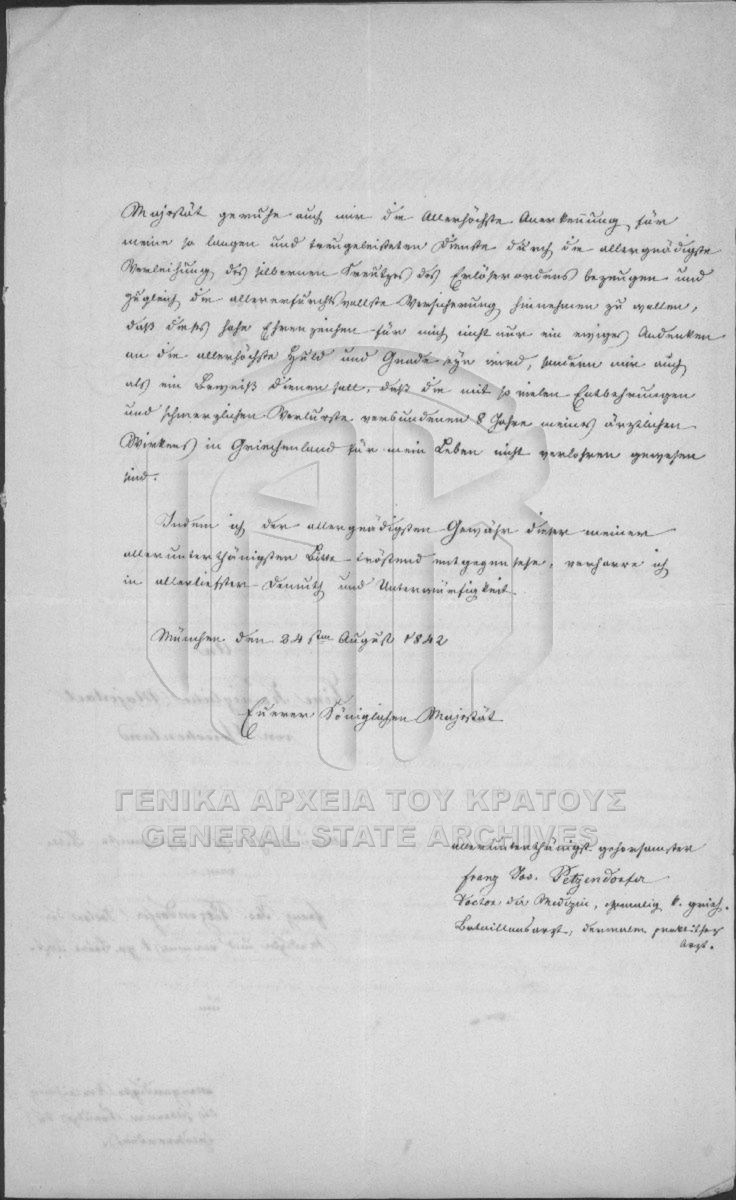 Majestät geruhe auch mir die Allerhöchste Anerkennung für
meine so langen und treugeleisteten Dienste durch die allergnädigste
Verleihung des silbernen Kreutzes des Erlöserordens bezeugen und
zugleich die allerehrfurchtsvollste Versicherung hinnehmen zu wollen,
daß dieses hohe Ehrenzeichen für mich nicht nur ein ewiges Andenken
an die allerhöchste Huld und Gnade seyn wird, sondern mir auch
als ein Beweiß dienen soll, daß die mit so vielen Entbehrungen
und schmerzlichen Verlurste verbundenen 8 Jahre meines ärztlichen
Wirkens in Griechenland für mein Leben nicht verlohren gewesen
sind.
Indem ich der allergnädigsten Gewähr dieser meiner
allerunterthänigsten Bitte tröstend entgegensehe, verharre ich
in allertiefster Demuth und Unterwürfigkeit.
München den 24 sten August 1842
Euerer Königlichen Majestät
ΓΕΝΙΚΑ ΑΡΧΕΙΑ ΤΟΥ ΚΡΑΤΟΥΣ
GENERAL STATE ARCHIVES
allerunterthänigst gehorsamster
Franz Jos. Petzendorfer
Doctor der Medizin, ehemalig k. griech.
Bataillonsarzt, dermalen praktischer
Arzt.